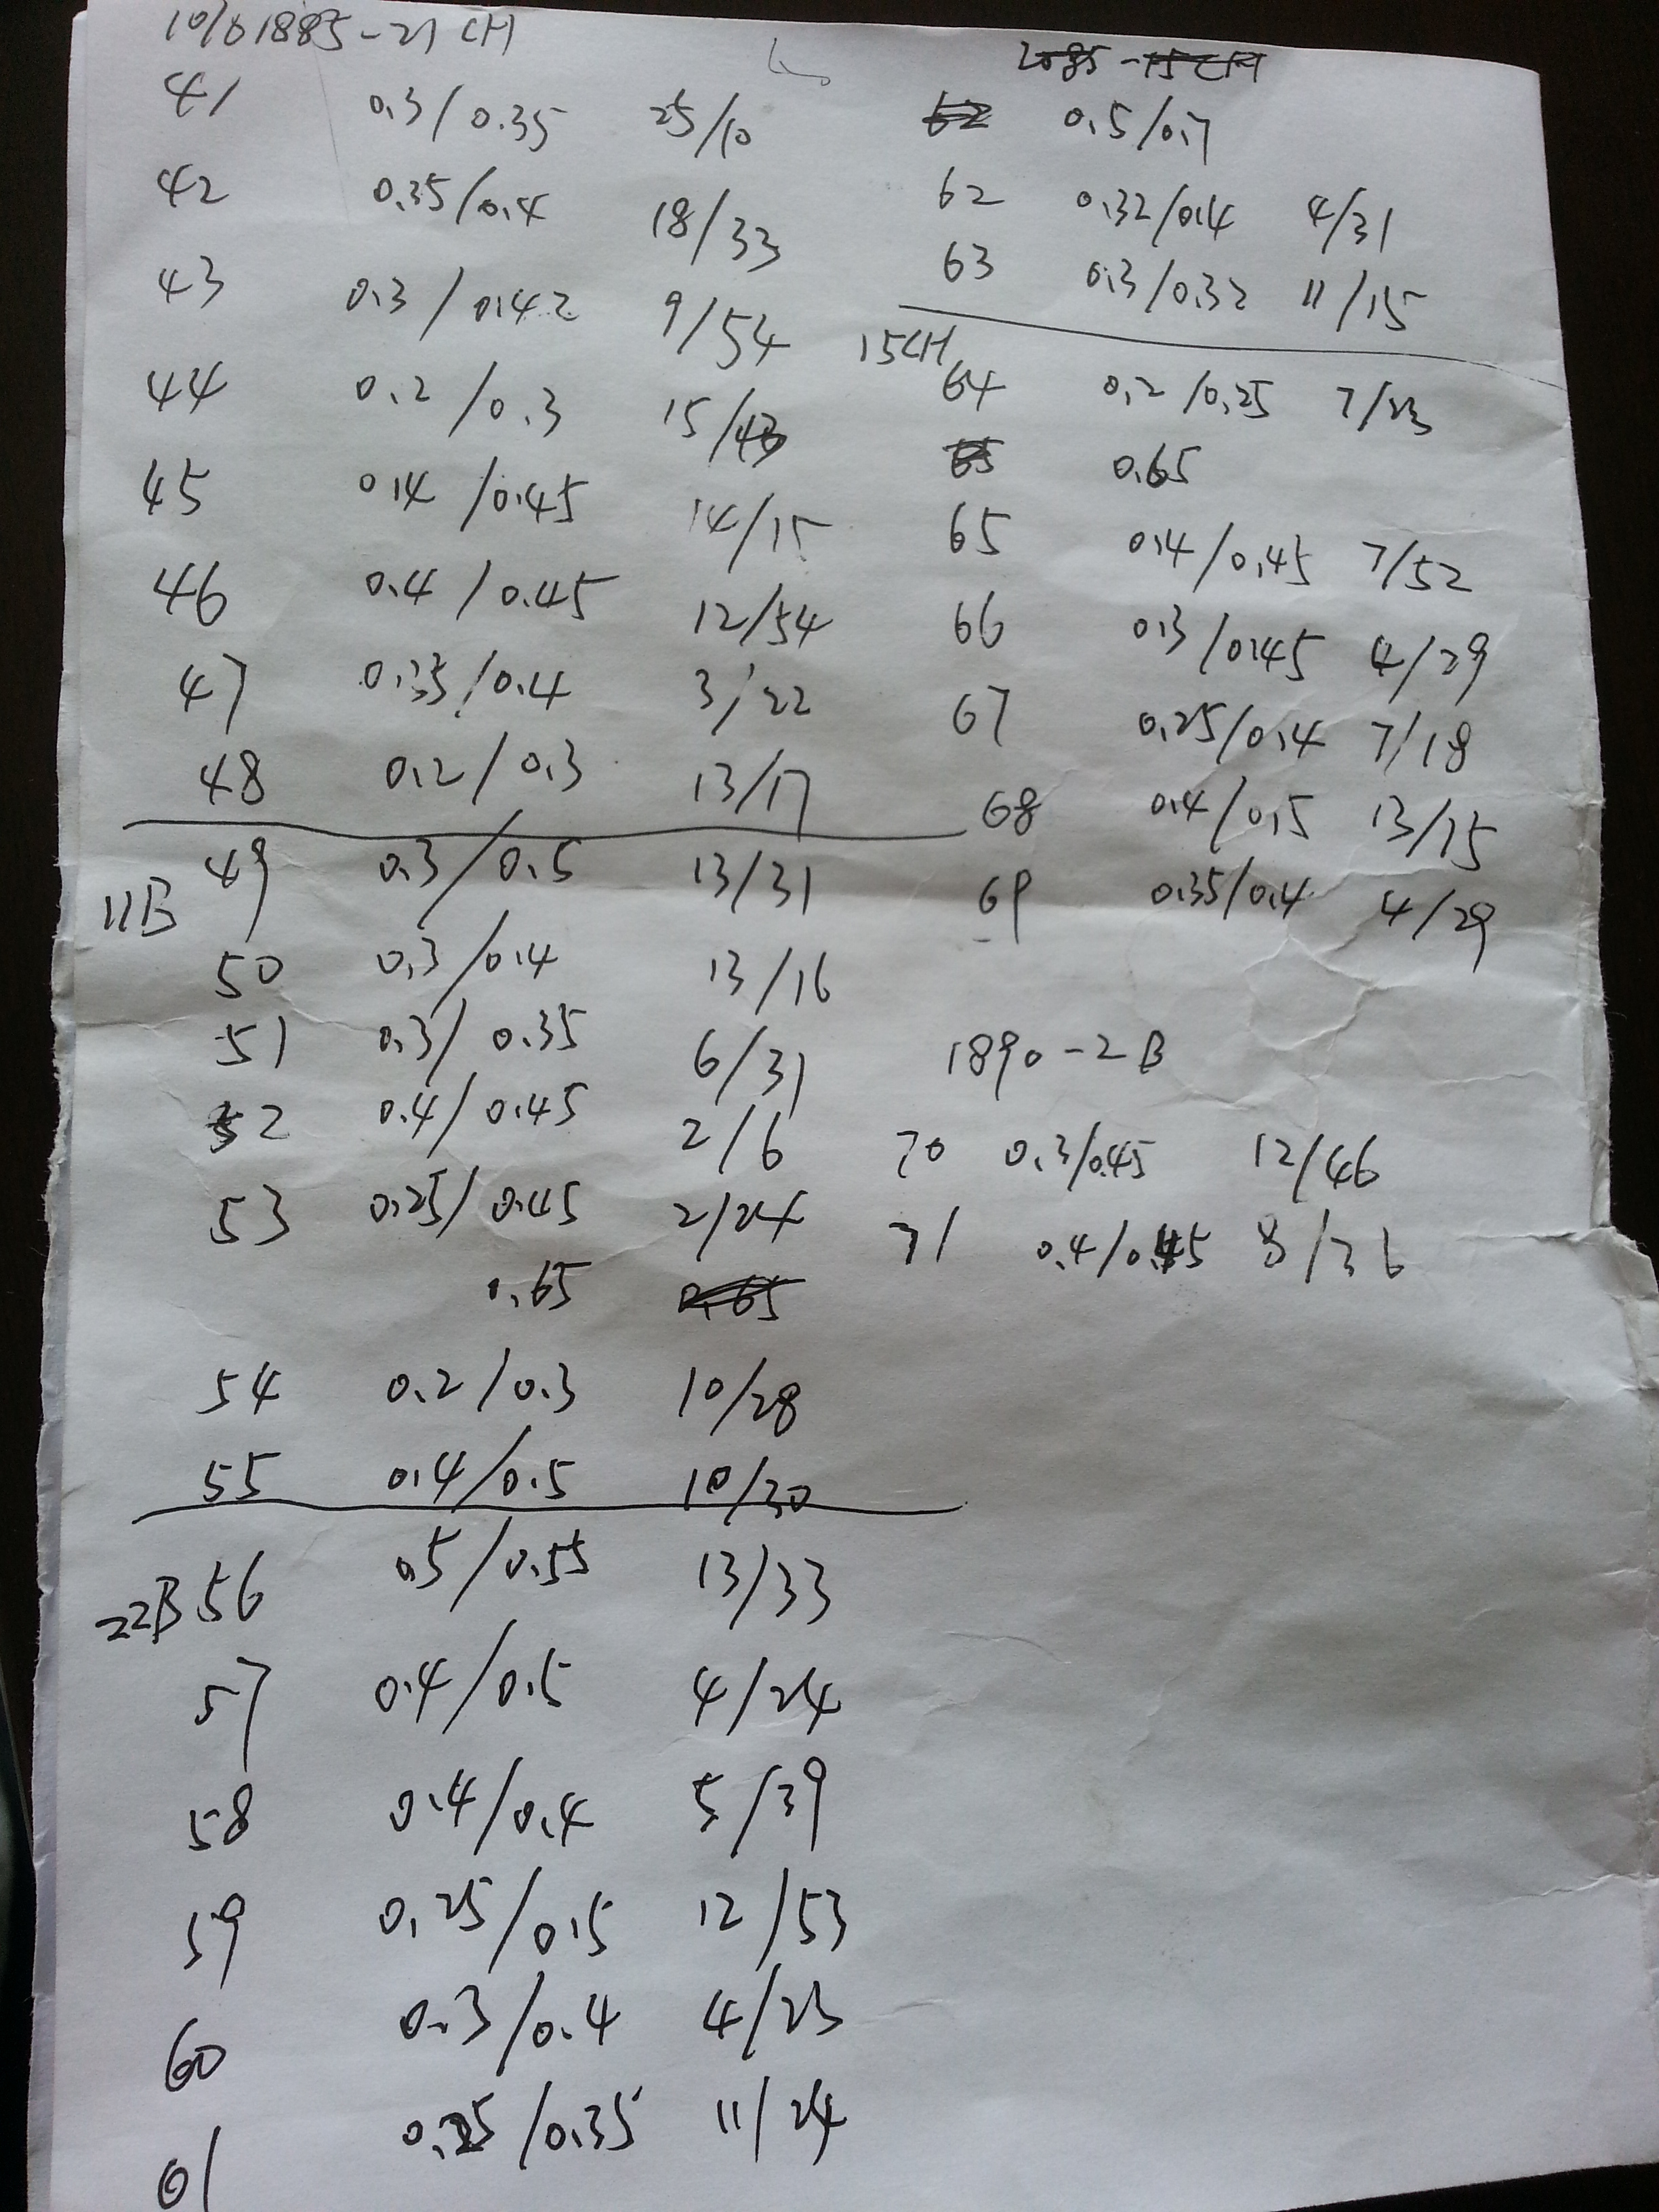 10/01885-21CH
41 0.3/0.35 25/10
42 0.35/0.4 18/33
43 0.3/0.42 9/54
44 0.2/0.3 15/43
45 0.4/0.45 14/15
46 0.4/0.45 12/54
47 0.35/0.4 3/22
48 0.2/0.3 13/17
11B 49 0.3/0.5 13/31
50 0.3/0.4 13/16
51 0.3/0.35 6/31
52 0.4/0.45 2/6
53 0.25/0.45 2/24
0.65 0.65
54 0.2/0.3 10/28
55 0.4/0.5 10/30
22B 56 0.5/0.55 13/33
57 0.4/0.5 4/24
58 0.4/0.4 5/39
59 0.25/0.5 12/53
60 0.3/0.4 4/23
61 0.25/0.35 11/24
2085-15CH
62 0.5/0.7
62 0.32/0.4 4/31
63 0.3/0.32 11/15
15CH
64 0.2/0.25 7/23
65 0.65
65 0.4/0.45 7/52
66 0.3/0.45 4/29
67 0.25/0.4 7/18
68 0.4/0.5 13/15
69 0.35/0.4 4/29
1890-2B
70 0.3/0.45 12/46
71 0.4/0.45 8/36